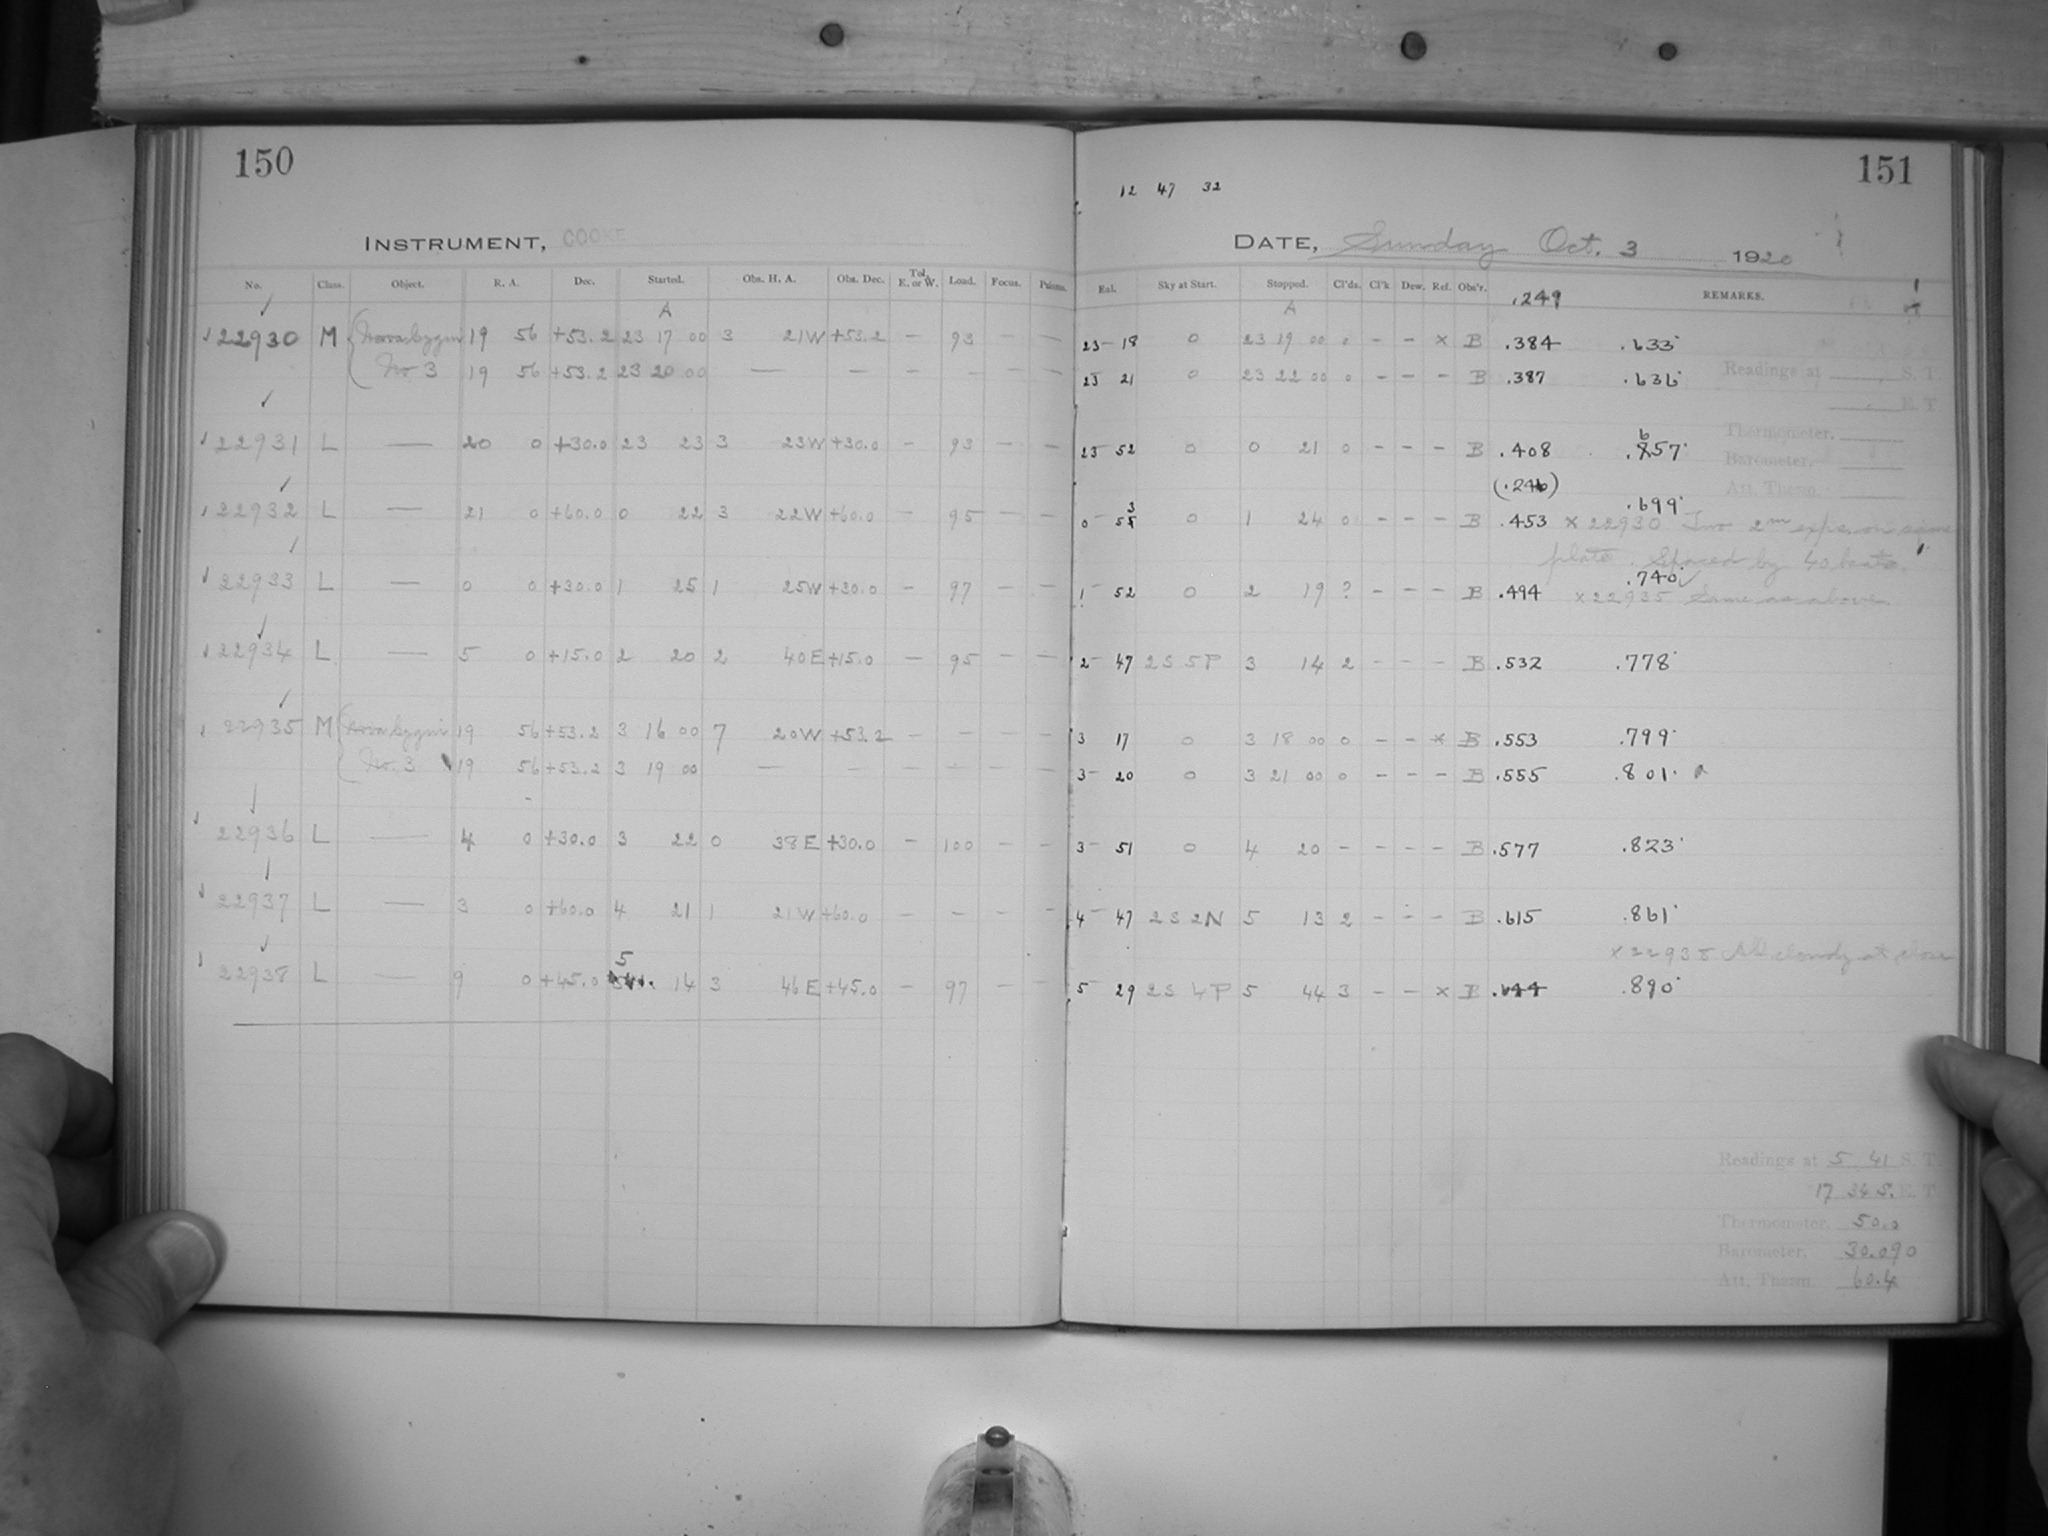 150
INSTRUMENT, COOKE
No. Class. Object. R. A. Dec. Started. Obs. H. A. Obs. Dec. Tel. E. or W. Load. Focus. Prisms.
A
22930 M 19 56 +53.2 23 17 00 3 21W +53.2 — 93 — —
No 3 19 56 +53.2 23 20 00 — — — — — —
22931 L — 20 0 +30.0 23 23 3 23W +30.0 — 93 — —
22932 L — 21 0 +60.0 0 22 3 22W +60.0 — 95 — —
22933 L — 0 0 +30.0 1 25 1 25W +30.0 — 97 — —
22934 L — 5 0 +15.0 2 20 2 40E +15.0 — 95 — —
22935 M 19 56 +53.2 3 16 00 7 20W +53.2 — — — —
No. 3 19 56 +53.2 3 19 00 — — — — — —
22936 L — 4 0 +30.0 3 22 0 38E +30.0 — 100 — —
22937 L — 3 0 +60.0 4 21 1 21W +60.0 — — — —
22938 L — 9 0 +45.0 5 14 3 46E +45.0 — 97 — —
151
12 47 32
DATE, Sunday Oct. 3 1920
Sky at Start. Stopped. Cl'ds. Cl'k Dew. Ref. Obs'r. .249 REMARKS.
A
23 – 18 0 23 19 00 0 – – x B .384 .633
23 21 0 23 22 00 0 – – – B .387 .636
Readings at S. T.
E. T.
Thermometer.
Barometer.
Att. Therm.
23 52 0 0 21 0 – – – B .408 .657
(.246)
0 – 53 0 1 24 0 – – – B .453 .699
x 22930 Two 2m exps. on same
plate. Spaced by 40 beats.
1 52 0 2 19 ? – – – B .494 .740
x 22935 Same as above.
2 – 47 2S 5P 3 14 2 – – – B .532 .778
3 17 0 3 18 00 0 – – x B .553 .799
3 – 20 0 3 21 00 0 – – – B .555 .801
3 – 51 0 4 20 – – – – B .577 .823
4 – 47 2S 2N 5 13 2 – – – B .615 .861
x 22938 All cloudy at close
5 29 2S 4P 5 44 3 – – x B .644 .890
Readings at 5 41 S. T.
17 34 S. E. T.
Thermometer. 50.0
Barometer. 30.090
Att. Therm. 60.4